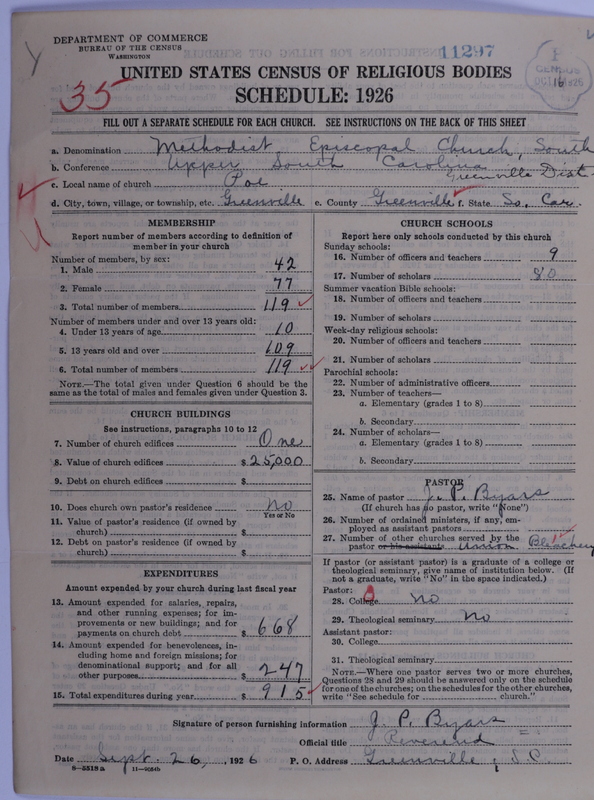 DEPARTMENT OF COMMERCE
BUREAU OF THE CENSUS
WASHINGTON
11297
CENSUS
OCT 16 1926
35
UNITED STATES CENSUS OF RELIGIOUS BODIES
SCHEDULE: 1926
FILL OUT A SEPARATE SCHEDULE FOR EACH CHURCH. SEE INSTRUCTIONS ON THE BACK OF THIS SHEET
a. Denomination Methodist Episcopal Church, South
b. Conference Upper South Carolina Greenville Dist.
c. Local name of church Poe
d. City, town, village, or township, etc. Greenville e. County Greenville f. State So. Car.
MEMBERSHIP
Report number of members according to definition of
member in your church
Number of members, by sex:
1. Male 42
2. Female 77
3. Total number of members 119
Number of members under and over 13 years old:
4. Under 13 years of age 10
5. 13 years old and over 109
6. Total number of members 119
NOTE.—The total given under Question 6 should be the
same as the total of males and females given under Question 3.
CHURCH BUILDINGS
See instructions, paragraphs 10 to 12
7. Number of church edifices One
8. Value of church edifices $ 25,000
9. Debt on church edifices $
10. Does church own pastor's residence No
Yes or No
11. Value of pastor's residence (if owned by
church) $
12. Debt on pastor's residence (if owned by
church) $
EXPENDITURES
Amount expended by your church during last fiscal year
13. Amount expended for salaries, repairs,
and other running expenses; for im-
provements or new buildings; and for
payments on church debt $ 668
14. Amount expended for benevolences, in-
cluding home and foreign missions; for
denominational support; and for all
other purposes $ 247
15. Total expenditures during year $ 915
CHURCH SCHOOLS
Report here only schools conducted by this church
Sunday schools:
16. Number of officers and teachers 9
17. Number of scholars 80
Summer vacation Bible schools:
18. Number of officers and teachers
19. Number of scholars
Week-day religious schools:
20. Number of officers and teachers
21. Number of scholars
Parochial schools:
22. Number of administrative officers
23. Number of teachers—
a. Elementary (grades 1 to 8)
b. Secondary
24. Number of scholars—
a. Elementary (grades 1 to 8)
b. Secondary
PASTOR
25. Name of pastor J. P. Byars
(If church has no pastor, write "None")
26. Number of ordained ministers, if any, em-
ployed as assistant pastors
27. Number of other churches served by the
pastor or his assistants Union Bleachery
If pastor (or assistant pastor) is a graduate of a college or
theological seminary, give name of institution below. (If
not a graduate, write "No" in the space indicated.)
Pastor:
28. College No
29. Theological seminary No
Assistant pastor:
30. College
31. Theological seminary
NOTE.—Where one pastor serves two or more churches,
Questions 28 and 29 should be answered only on the schedule
for one of the churches; on the schedules for the other churches,
write "See schedule for church."
Signature of person furnishing information J. P. Byars
Official title Reverend
Date Sept. 26, 1926 P. O. Address Greenville, S.C.
8—5518 a